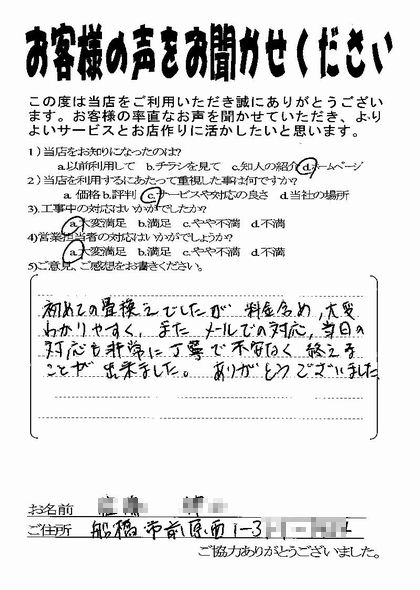 お客様の声をお聞かせください
この度は当店をご利用いただき誠にありがとうござい
ます。お客様の率直なお声を聞かせていただき、より
よいサービスとお店作りに活かしたいと思います。
1)当店をお知りになったのは?
a.以前利用して b.チラシを見て c.知人の紹介 d.ホームページ
2)当店を利用するにあたって重視した事は何ですか?
a. 価格 b.評判 c.サービスや対応の良さ d.当社の場所
3).工事中の対応はいかがでしたか?
a.大変満足 b.満足 c.やや不満 d.不満
4)営業担当者の対応はいかがでしょうか?
a.大変満足 b.満足 c.やや不満 d.不満
5)ご意見、ご感想をお書きください。
初めての畳換えでしたが 料金含め,大変
わかりやすく, また メールでの対応, 当日の
対応も非常に丁寧で不安なく 終える
ことが 出来ました。 ありがとうございました
お名前
ご住所 船橋市前原西1-3
ご協力ありがとうございました。